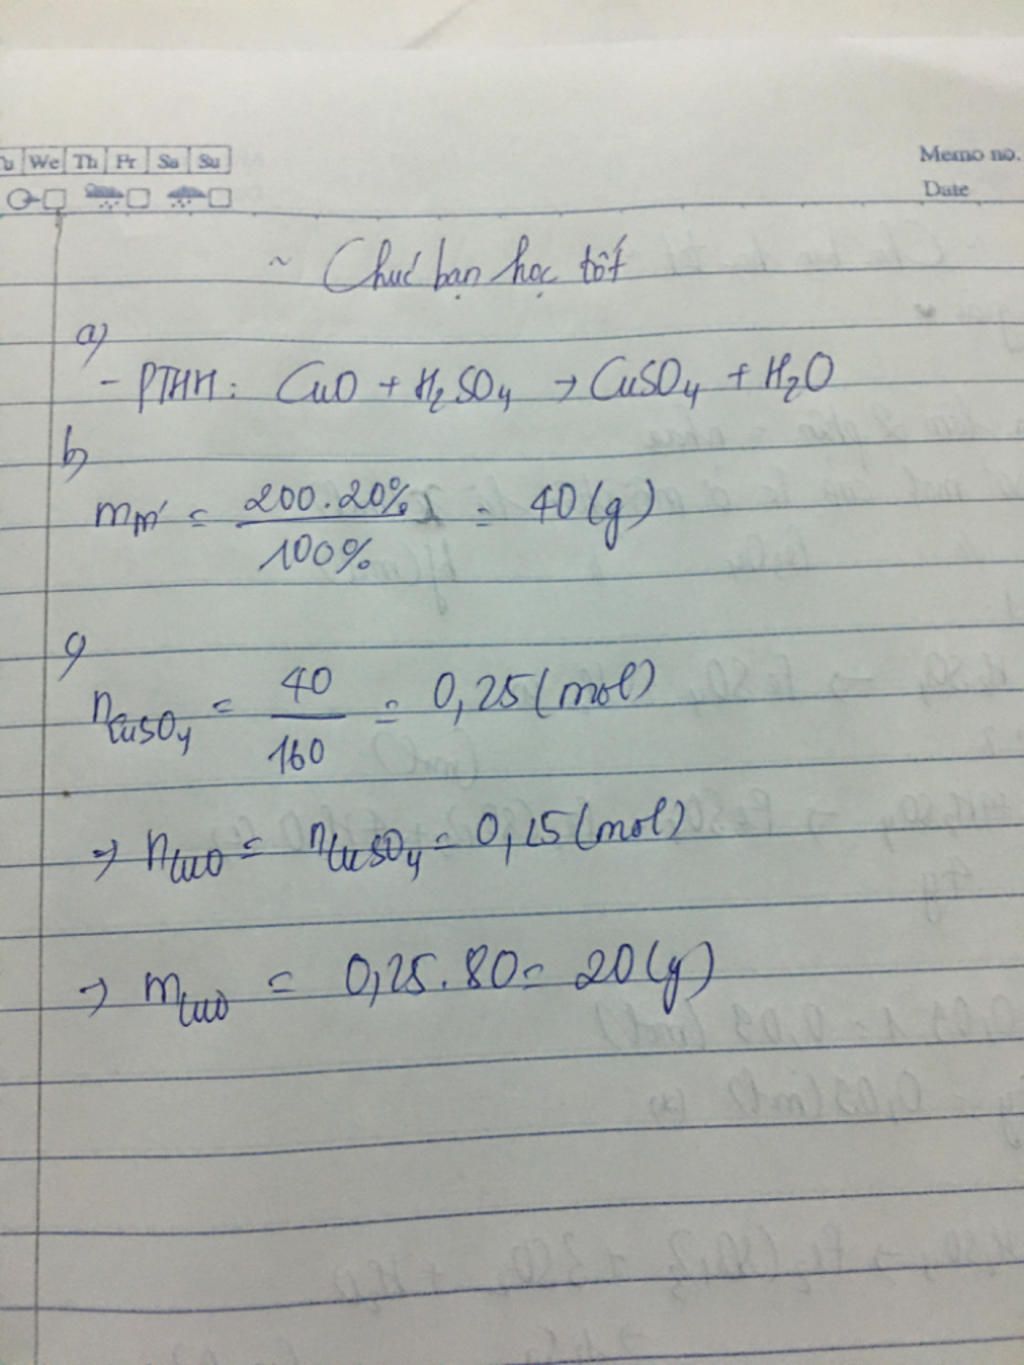 u We Th Fr Sa Su
Memo no.
Date
~ Chúc bạn học tốt
a)
- PTHH: CuO + H₂SO₄ → CuSO₄ + H₂O
b)
m = 200.20% / 100% = 40(g)
c)
nCuSO₄ = 40 / 160 = 0,25(mol)
=> nCuO = nCuSO₄ = 0,25(mol)
=> mCuO = 0,25.80 = 20(g)